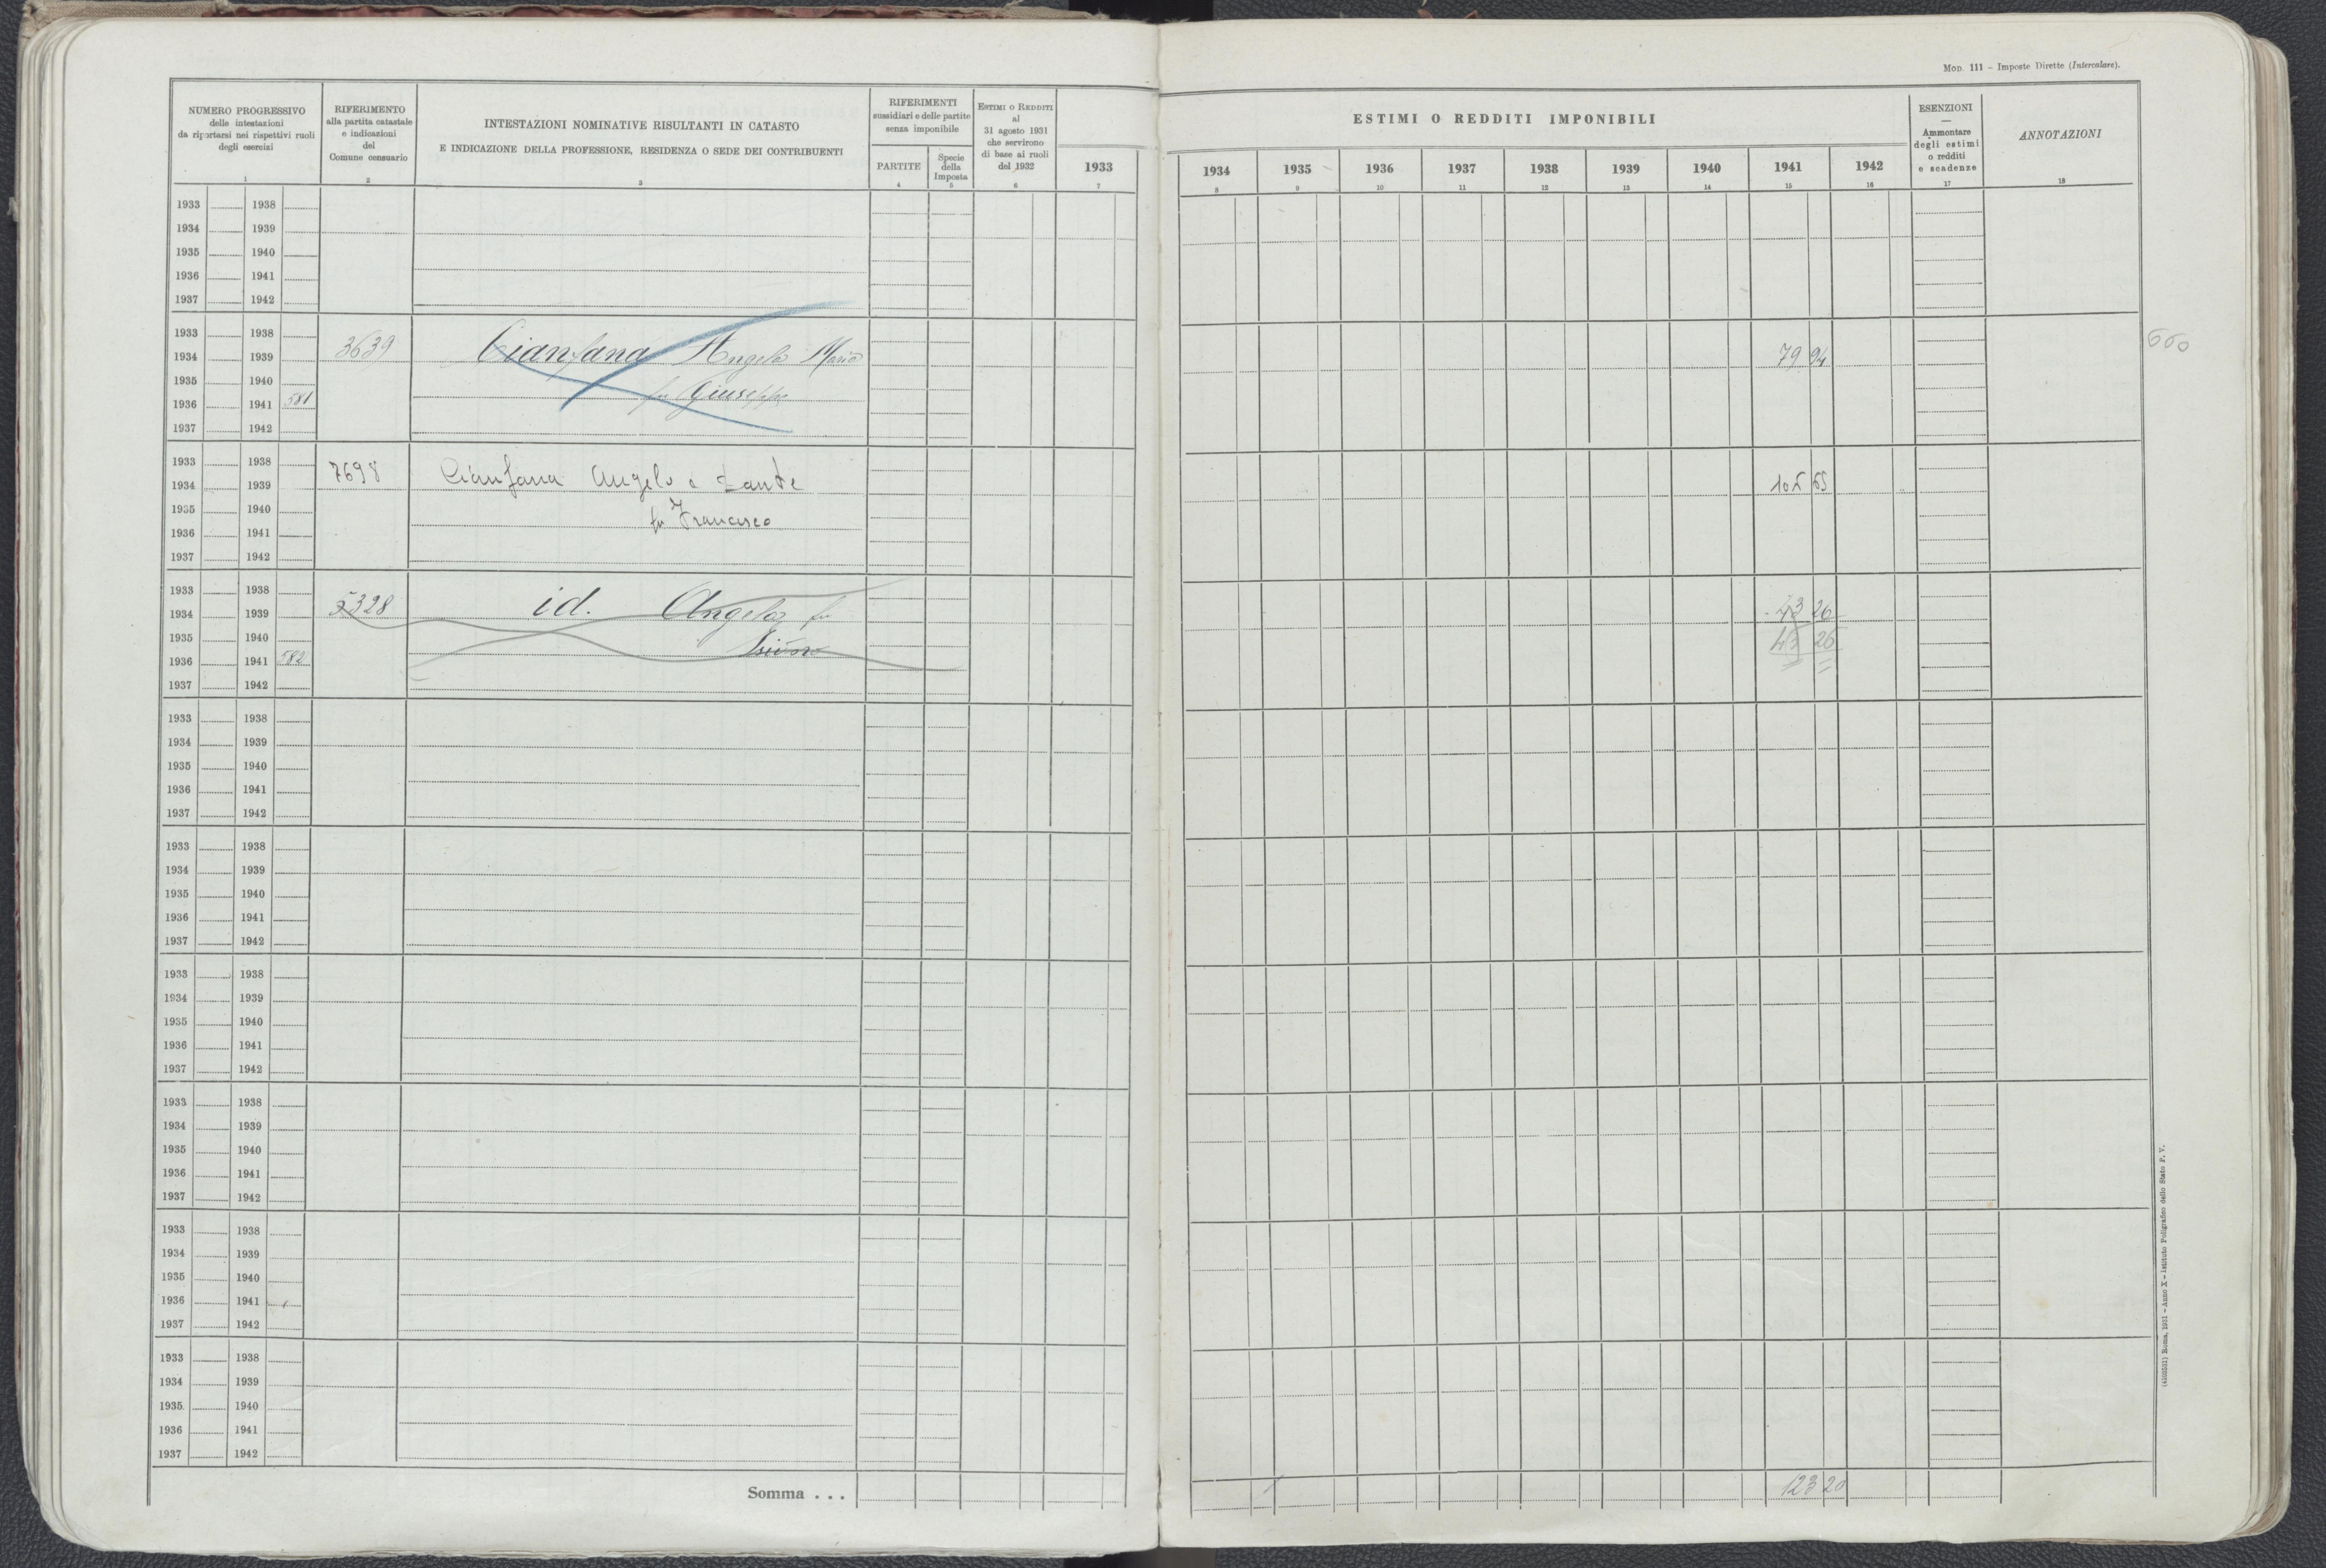 Mod. 111 – Imposte Dirette (Intercalare).
NUMERO PROGRESSIVO
delle intestazioni
da riportarsi nei rispettivi ruoli
degli esercizi
1
RIFERIMENTO
alla partita catastale
e indicazioni
del
Comune censuario
2
INTESTAZIONI NOMINATIVE RISULTANTI IN CATASTO
E INDICAZIONE DELLA PROFESSIONE, RESIDENZA O SEDE DEI CONTRIBUENTI
3
RIFERIMENTI
sussidiari e delle partite
senza imponibile
PARTITE
4
Specie
della
Imposta
5
ESTIMI O REDDITI
al
31 agosto 1931
che servirono
di base ai ruoli
del 1932
6
1933
7
ESTIMI O REDDITI IMPONIBILI
1934 1935 1936 1937 1938 1939 1940 1941 1942
8 9 10 11 12 13 14 15 16
ESENZIONI
—
Ammontare
degli estimi
o redditi
e scadenze
17
ANNOTAZIONI
18
1933 1938
1934 1939
1935 1940
1936 1941
1937 1942
1933 1938
1934 1939 3639 Cianfana Angelo Maria 79 94
1935 1940
1936 1941 581 fu Giuseppe
1937 1942
1933 1938
1934 1939 7698 Cianfana Angelo e Dante 105 65
1935 1940
1936 1941 fu Francesco
1937 1942
1933 1938
1934 1939 5328 id. Angelo fu 43 26
1935 1940 43 26
1936 1941 582
1937 1942
1933 1938
1934 1939
1935 1940
1936 1941
1937 1942
1933 1938
1934 1939
1935 1940
1936 1941
1937 1942
1933 1938
1934 1939
1935 1940
1936 1941
1937 1942
1933 1938
1934 1939
1935 1940
1936 1941
1937 1942
1933 1938
1934 1939
1935 1940
1936 1941
1937 1942
1933 1938
1934 1939
1935 1940
1936 1941
1937 1942
Somma . . . 123 20
(4103531) Roma, 1931 – Anno X – Istituto Poligrafico dello Stato P. V.